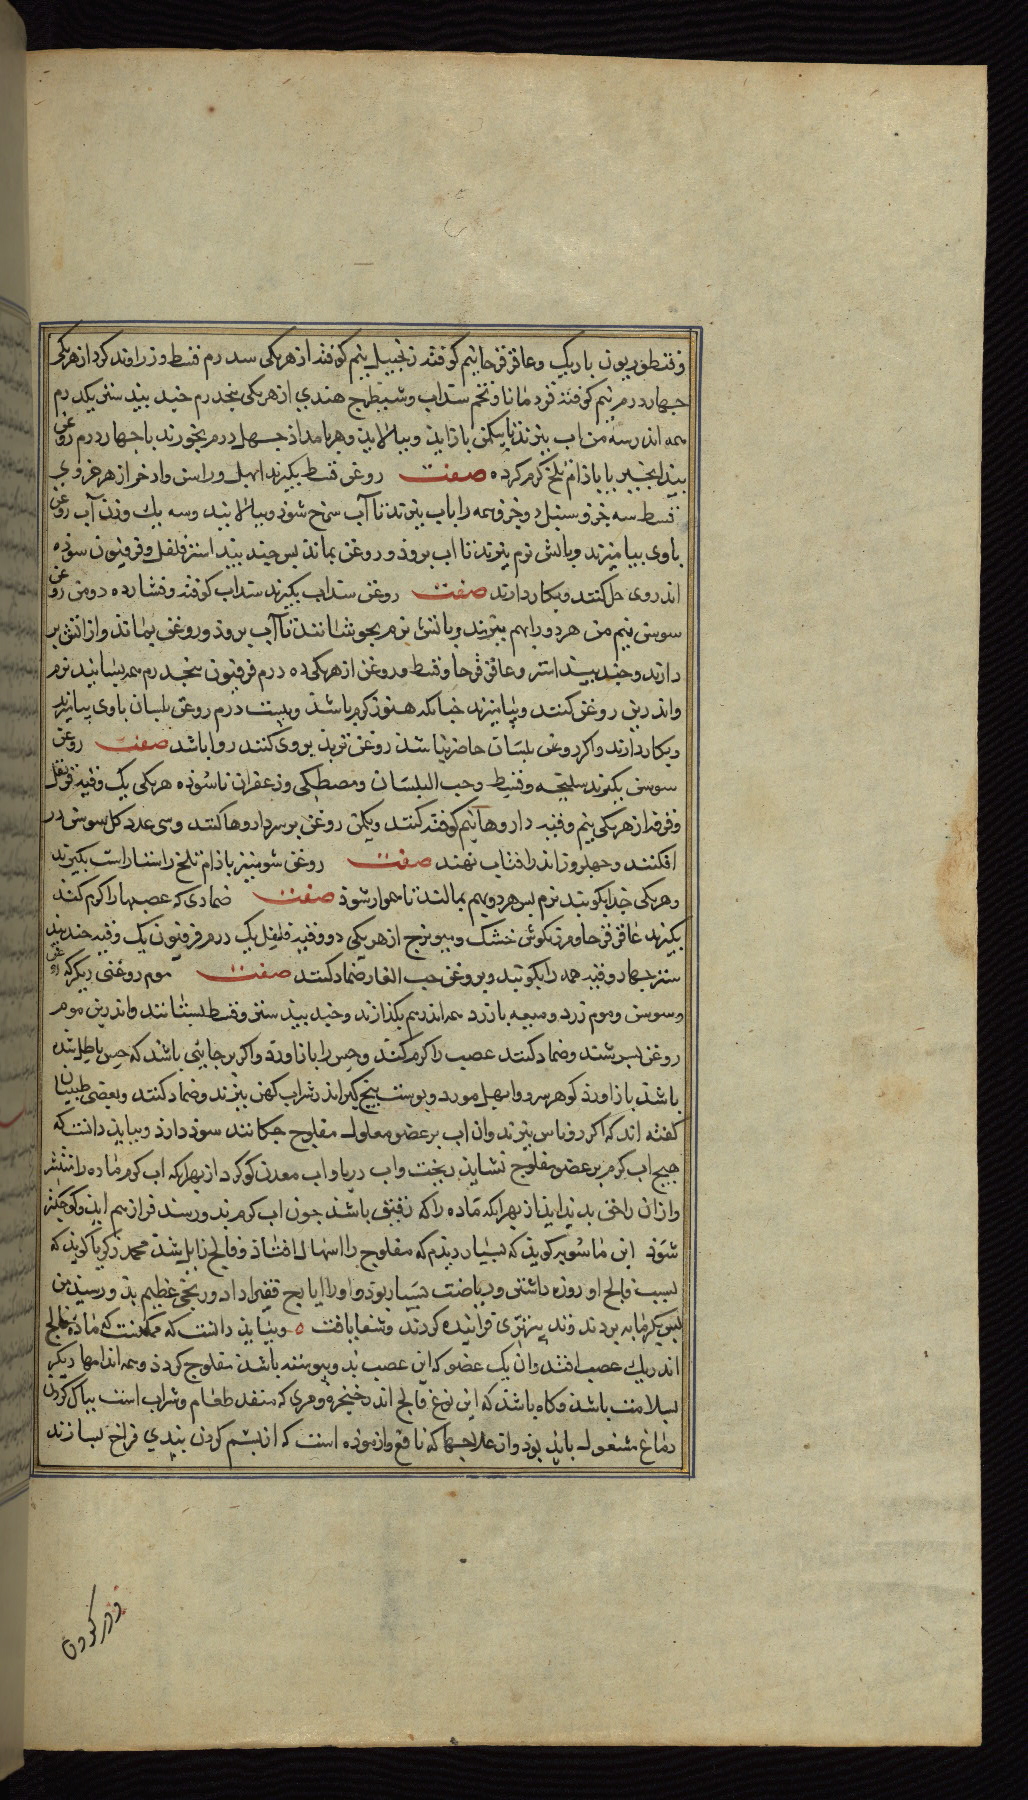 و قنطوریون باریک و عاقرقرحا نیم کوفته زنجبیل نیم کوفته از هریکی سه درم قسط و زراوند کرد از هریکی
جهار درم نیم کوفته قردمانا و تخم سداب و شیطرج هندی از هریکی بنجدرم جند بیدستر یکدرم
همه اندر سه من اب ببزند تا بیکمن بازاید و ببالایند و هر بامداذ جهل درم بخورند با جهار درم روغن
بیدانجیر یا باذام تلخ کرم کرده ه صفت روغن قسط بکیرند ابهل و راسن و اذخر از هر جزوی
قسط سه جزو سنبل دو جزو همه را باب ببزند تا آب سرخ شوذ و ببالایند و سه یک وزن آب روغن
باوی بیامیزند و باتش نرم ببزند تا اب بروذ و روغن بماند بس جند بیدستر فلفل و فرفیون سوذه
اندروی حل کنند و بکار دارند صفت روغن سداب بکیرند سداب کوفته و فشارده دو من روغن
سوسن نیم من هر دو را بهم ببزند و باتش نرم بجوشانند تا آب بروذ و روغن بماند و از اتش بر
دارند و جند بیدستر و عاقرقرحا و قسط و روغن از هریکی ده درم فرفیون بنجدرم همه بسایند نرم
و اندرین روغن کنند و بیامیزند جنانکه هنوز کرم باشد و بیست درم روغن بلسان باوی بیامیزند
و بکار دارند و اکر روغن بلسان حاضر نباشد روغن ترب بروی کنند روا باشد صفت روغن
سوسن بکیرند سلیخه و قسط و حب البلسان و مصطکی و زعفران ناسوذه هریکی یک وقیه قرنفل
و قرفه از هریکی نیم وقیه داروها نیم کوفته کنند و یکمن روغن بر سر داروها کنند و سی عدد کل سوسن در
افکنند و جهل روز اندر افتاب نهند صفت روغن شونیز باذام تلخ راستا راست بکیرند
و هریکی جدا بکوبند نرم بس هر دو بهم بمالند تا هموار شوذ صفت ضمادی که عصبها را کرم کند
بکیرند عاقرقرحا و مرزنکوش خشک و میویزج از هریکی دو وقیه فلفل یک درم فرفیون یک وقیه جند بید
ستر جهار وقیه همه را بکوبند و بروغن حب الغار ضماد کنند صفت موم روغنی دیکر که روغن
و سوسن و موم زرد و میعه بارزد همه اندر هم بکذازند و جند بیذ ستر و قسط بستانند و اندرین موم
روغن بسرشند و ضماد کنند عصب را کرم کند و حس را باز اورد و اکر برجایی باشد که حس باطل شده
باشد باز اورد کوهر سرو و ابهل مورد و بوست بیخ کبر اندر شراب کهن ببزند و ضماد کنند و بعضی طبیبان
کفته اند که اکر روباس ببزند و ان اب بر عضو معلول مفلوج جکانند سوذ دارذ و بباید دانست که
هیج اب کرم بر عضو مفلوج نشاید ریخت و اب دریا و اب معدن کوکرد از بهر انکه اب کرم ماده را منتشر
و از ان راحتی بدید ایذ از بهر انکه ماده را که رقیق باشد جون اب کرم بذو رسد فراز هم ایذ و کوجکتر
شوذ ابن ماسویه کوید که بسیار دیذم که مفلوج را اسهال افتاذ و فالج زایل شد محمد زکریا کوید که
بسبب فالج او روزه داشتن و ریاضت بسیار بوذ و او را ایارج فیقرا داد و رنجی عظیم بذو رسید من
بسوی کرمابه بردند و تدبیر تری فزاینده کردند و شفا یافت ه و بباید دانست که ممکنست که ماده فالج
اندر یک عصب افتد و ان یک عضو که این عصب بذو بیوسته باشد مفلوج کردد و همه اندامها دیکر
بسلامت باشد و کاه باشد که این نوع فالج اندر حنجره و مری که منفذ طعام و شراب است بباک کردن
دماغ مشغول باید بوذ و از علاجها که نافع و ازموذه است که از بشم کردن بندی فراخ بسازند
و در کردن